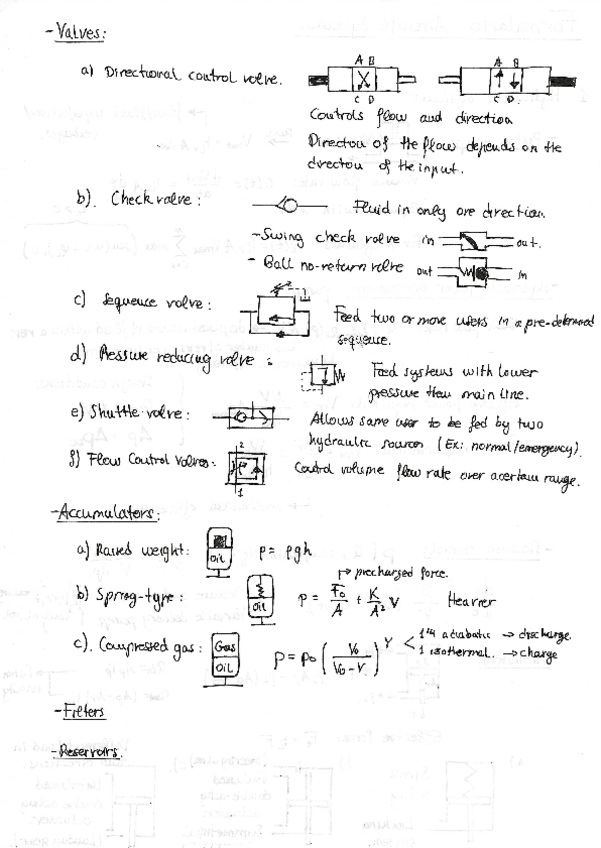 - Valves:
a) Directional control valve.
A B
C D
A B
C D
Controls flow and direction
Direction of the flow depends on the
direction of the input.
b). Check valve:
Fluid in only one direction.
- Swing check valve in out.
- Ball no-return valve out in
c) Sequence valve:
2
1
Feed two or more users in a pre-determined
sequence.
d) Pressure reducing valve:
Feed systems with lower
pressure than main line.
e) Shuttle valve:
Allows same user to be fed by two
hydraulic sources (Ex: normal/emergency).
f) Flow Control Valves:
2
1
Control volume flow rate over a certain range.
- Accumulators:
a) Raised weight: Oil P = ρgh
→ precharged force.
b) Spring-type: Oil P = F₀/A + K/A² V Heavier
c). Compressed gas: Gas Oil P = P₀ (V₀/(V₀-V))^γ < 1'4 adiabatic → discharge.
1 isothermal. → charge
- Filters
- Reservoirs.